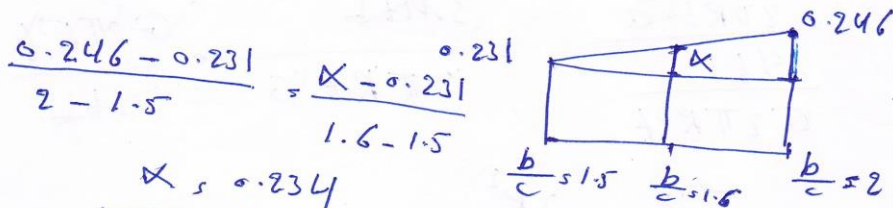 0.246 - 0.231 / 2 - 1.5 = α - 0.231 / 1.6 - 1.5
α = 0.234
0.231
0.246
α
b/c = 1.5
b/c = 1.6
b/c = 2